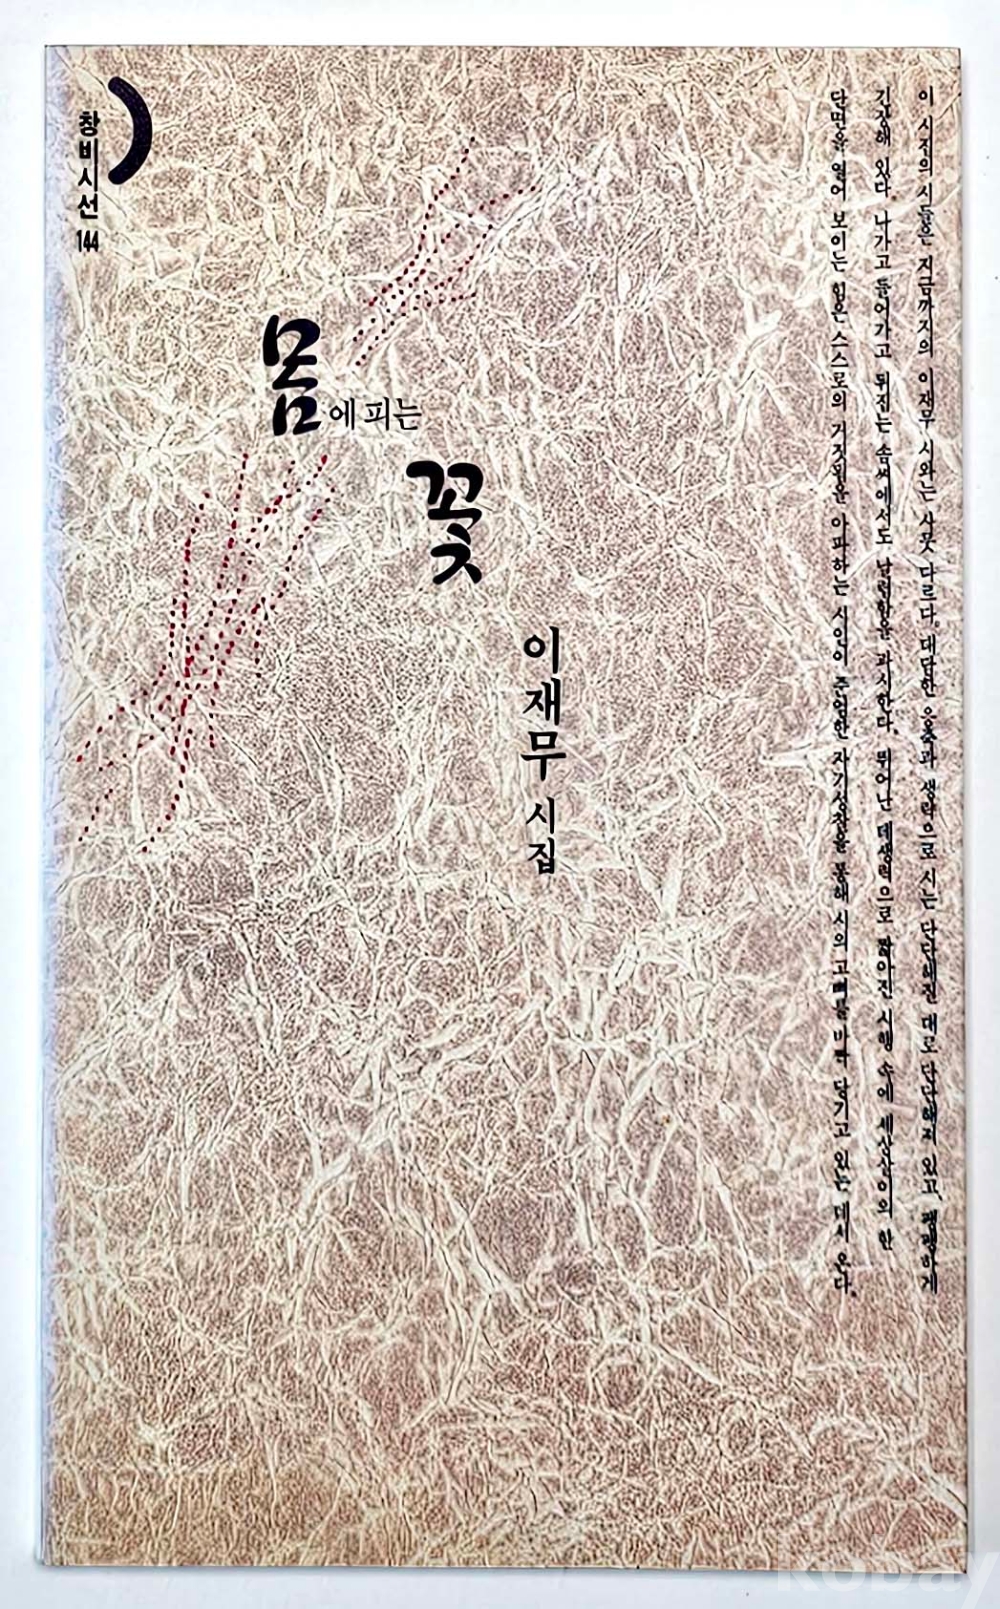 창비시선 144
몸에 피는
꽃
이재무 시집
이 시집의 시들은 지금까지의 이재무 시와는 사뭇 다르다. 대담한 은유과 생략으로 시는 단단해질 대로 단단해져 있고, 팽팽하게
긴장해 있다. 나가고 들어가고 뒤집는 솜씨에서도 날렵함을 과시한다. 뛰어난 대생력으로 짜여진 시행 속에 세상살이의 한
단면을 열어 보이는 일은 스스로의 거짓됨을 아파하는 시인의 준엄한 자기성찰을 통해 시의 고삐를 바짝 당기고 있는 데서 온다.
kobay